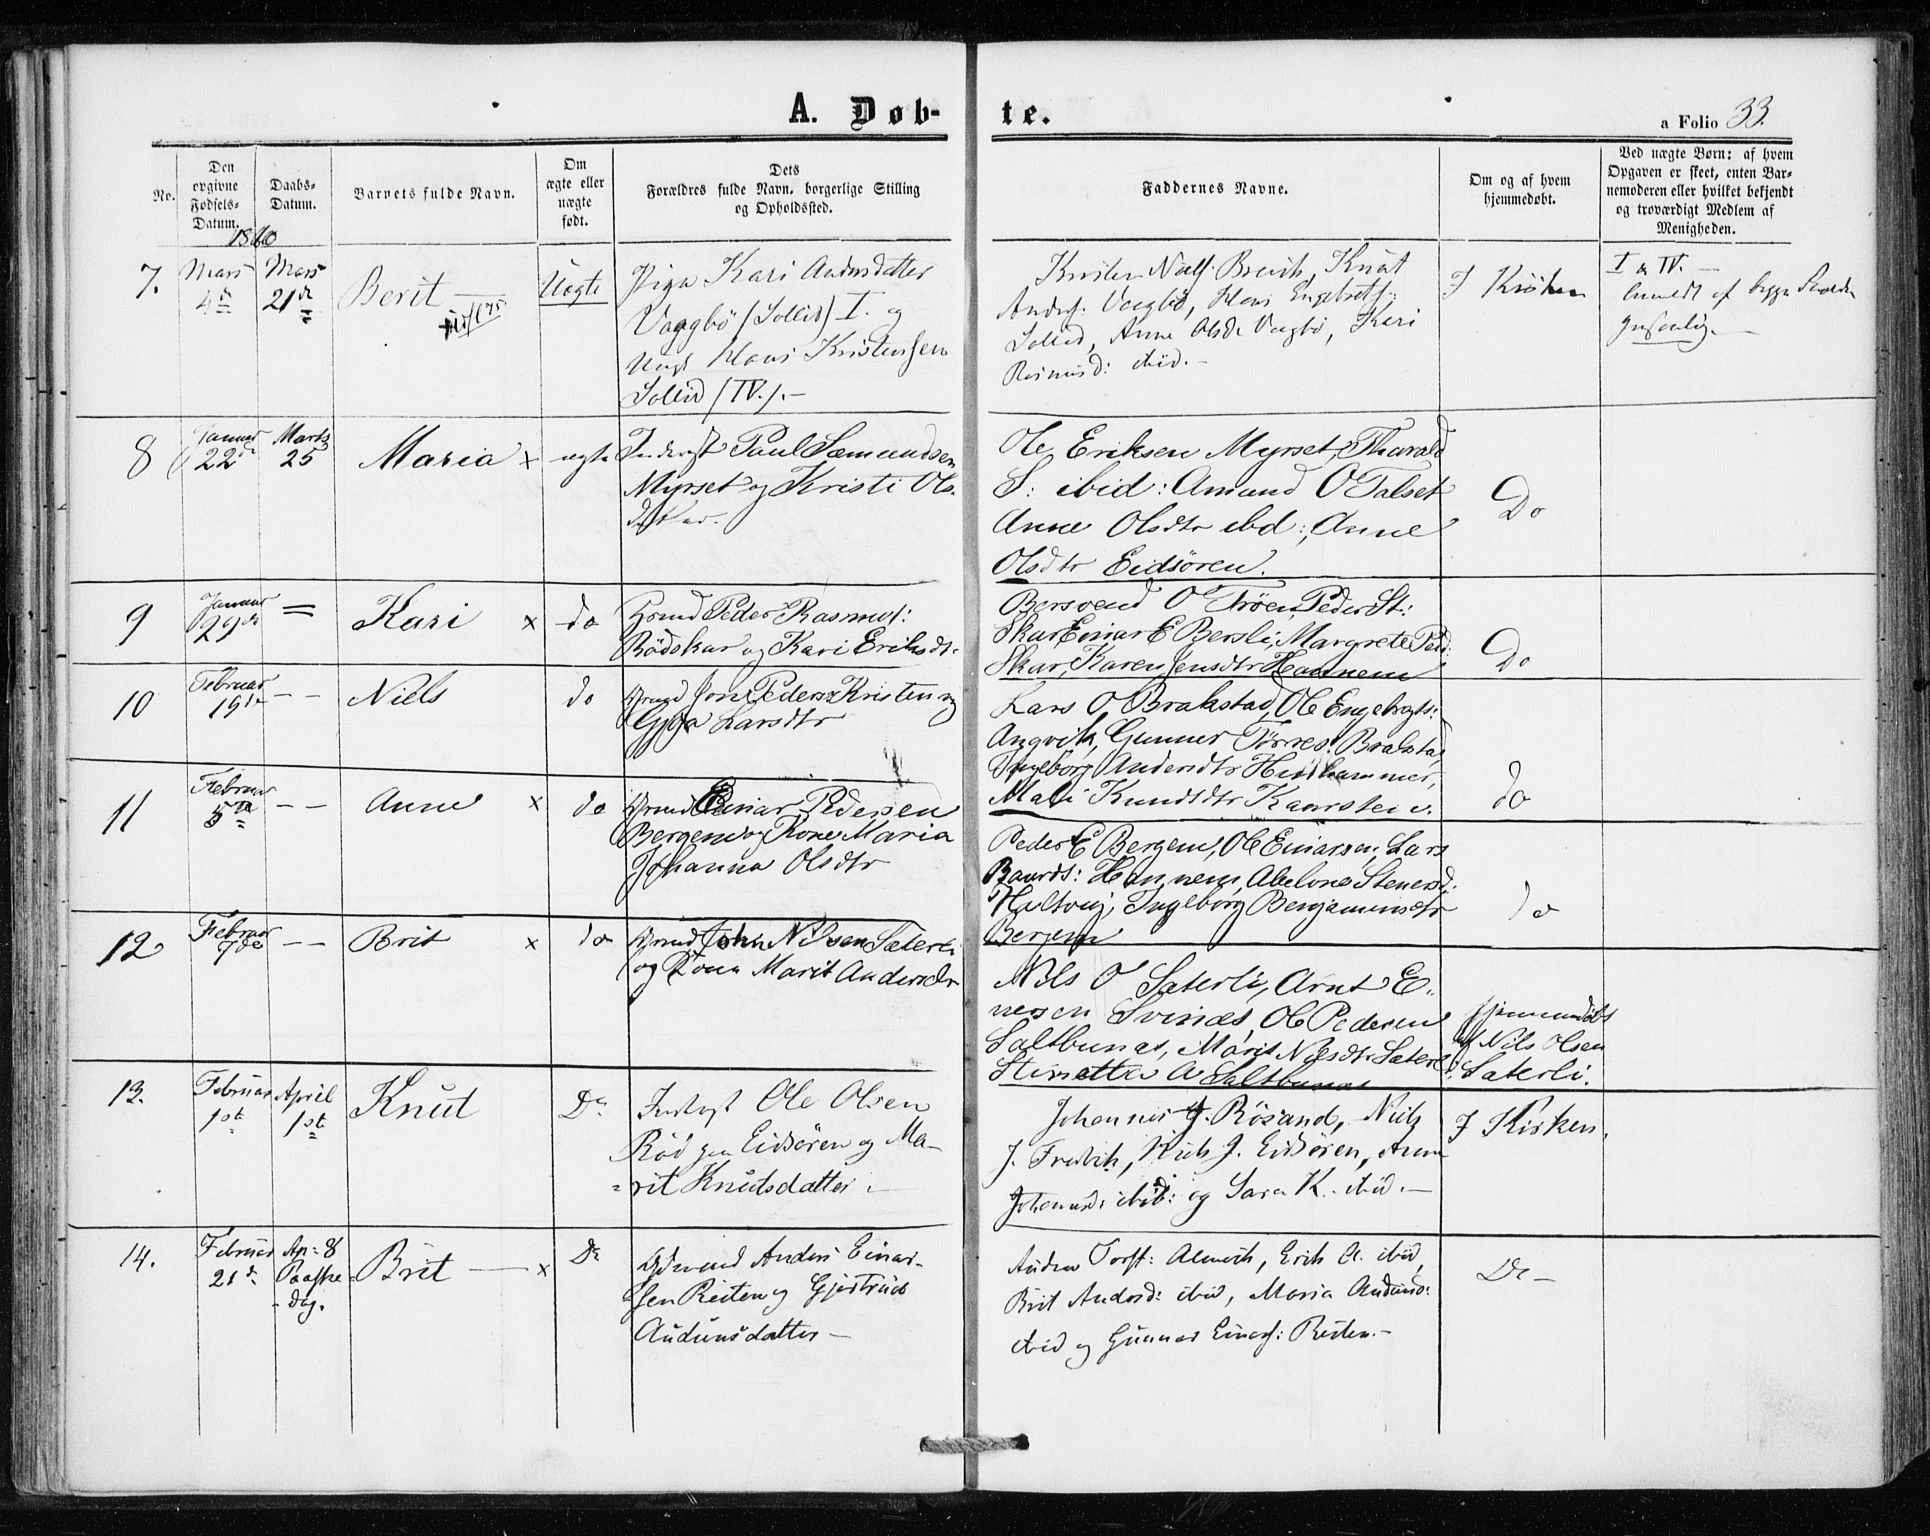 A. Døb-
te.
a Folio 33.
No.
Den
opgivne
Fødsels-
Datum.
Daabs-
Datum.
Barnets fulde Navn.
Om
ægte eller
uægte
født.
Dets
Forældres fulde Navn, borgerlige Stilling
og Opholdssted.
Faddernes Navne.
Om og af hvem
hjemmedøbt.
Ved uægte Børn: af hvem
Opgaven er skeet, enten Bar-
nemoderen eller hvilket bekjendt
og troværdigt Medlem af
Menigheden.
1860
7.
Mars
4d
Mars
21de
Berit
Uægte
Pige Kari Andersdatter
Vaagbö (Sollid) I. og
Ungk Hans Kristensen
Sollid (IV.).-
Andersf: Vaagbö, Hans Engebretsf:
Sollid, Anne Olsdr Vaagbö, Kari
Rasmusd: ibid.-
I Kirken
I & IV. -
8
Januar
22de
Marts
25
Maria x
ægte
Inderst Paul Sæmundsen
Myrset og Kristi Ols-
datter.
Ole Eriksen Myrset, Tharald
S: ibid: Amund O Talset
Anne Olsdtr ibd:, Anne
Olsdtr Eidsören.
Do
9
Januar
29de
=
Kari x
do
Grmd Peder Rasmus:
Rödskar og Kari Eriksdtr.
Bersvend O Tröen, Peder St:
Skar Einar E Bersli, Margrete Ped:
Skar, Karen Jensdtr Hannem
Do
10
Februar
19de
- -
Niels
do
Grmd Jon Peders Kristen og
Gjøa Larsdtr
Lars O Brakstad, Ole Engebrets:
Angvik, Gunner Torres: Brakstad
Ingeborg Andersdtr Hindhammer,
Mali Knudsdtr Kanestei
do
11
Februar
5te
- -
Anne x
do
Grmd Einar Pedersen
Bergem og Kone Maria
Johanna Olsdtr
Peder E Bergem, Ole Einarsen, Lars
Baards: Hannem, Abelone Stenersd.
Haltvig, Ingeborg Benjaminsdtr
Bergem
do
12
Februar
7de
- -
Brit x
do
Grmd John Nilsen Sæterli
og Kone Marit Andersdr
Nils O Sæterli, Arnt E-
nersen Svinæs, Ole Pedersen
Saltbunæs, Marit Nilsdtr Sæterli
Stinettia A Saltbunæs
hjemmedöbt
af Nils Olsen
Sæterli.
13.
Februar
1st
April
1st
Knut
Do
Inderst Ole Olsen
Röd paa Eidsören og Ma-
rit Knutsdatter.-
Johannes J. Rösand, Niels
J. Fredvik, Niels J. Eidsören, Anne
Johannsd: ibid: og Sara K. ibid.-
I Kirken.
14.
Februar
21d
Ap: 8
Paaske-
dag.
Brit - x
Do
Gdmand Anders Einar-
sen Reiten og Gjertrud
Audunsdatter -
Anders Torst: Almvik, Erik A. ibid,
Brit Andersd: ibid, Maria Audunsd:
ibid og Gunnar Einars: Reiten.-
Do -